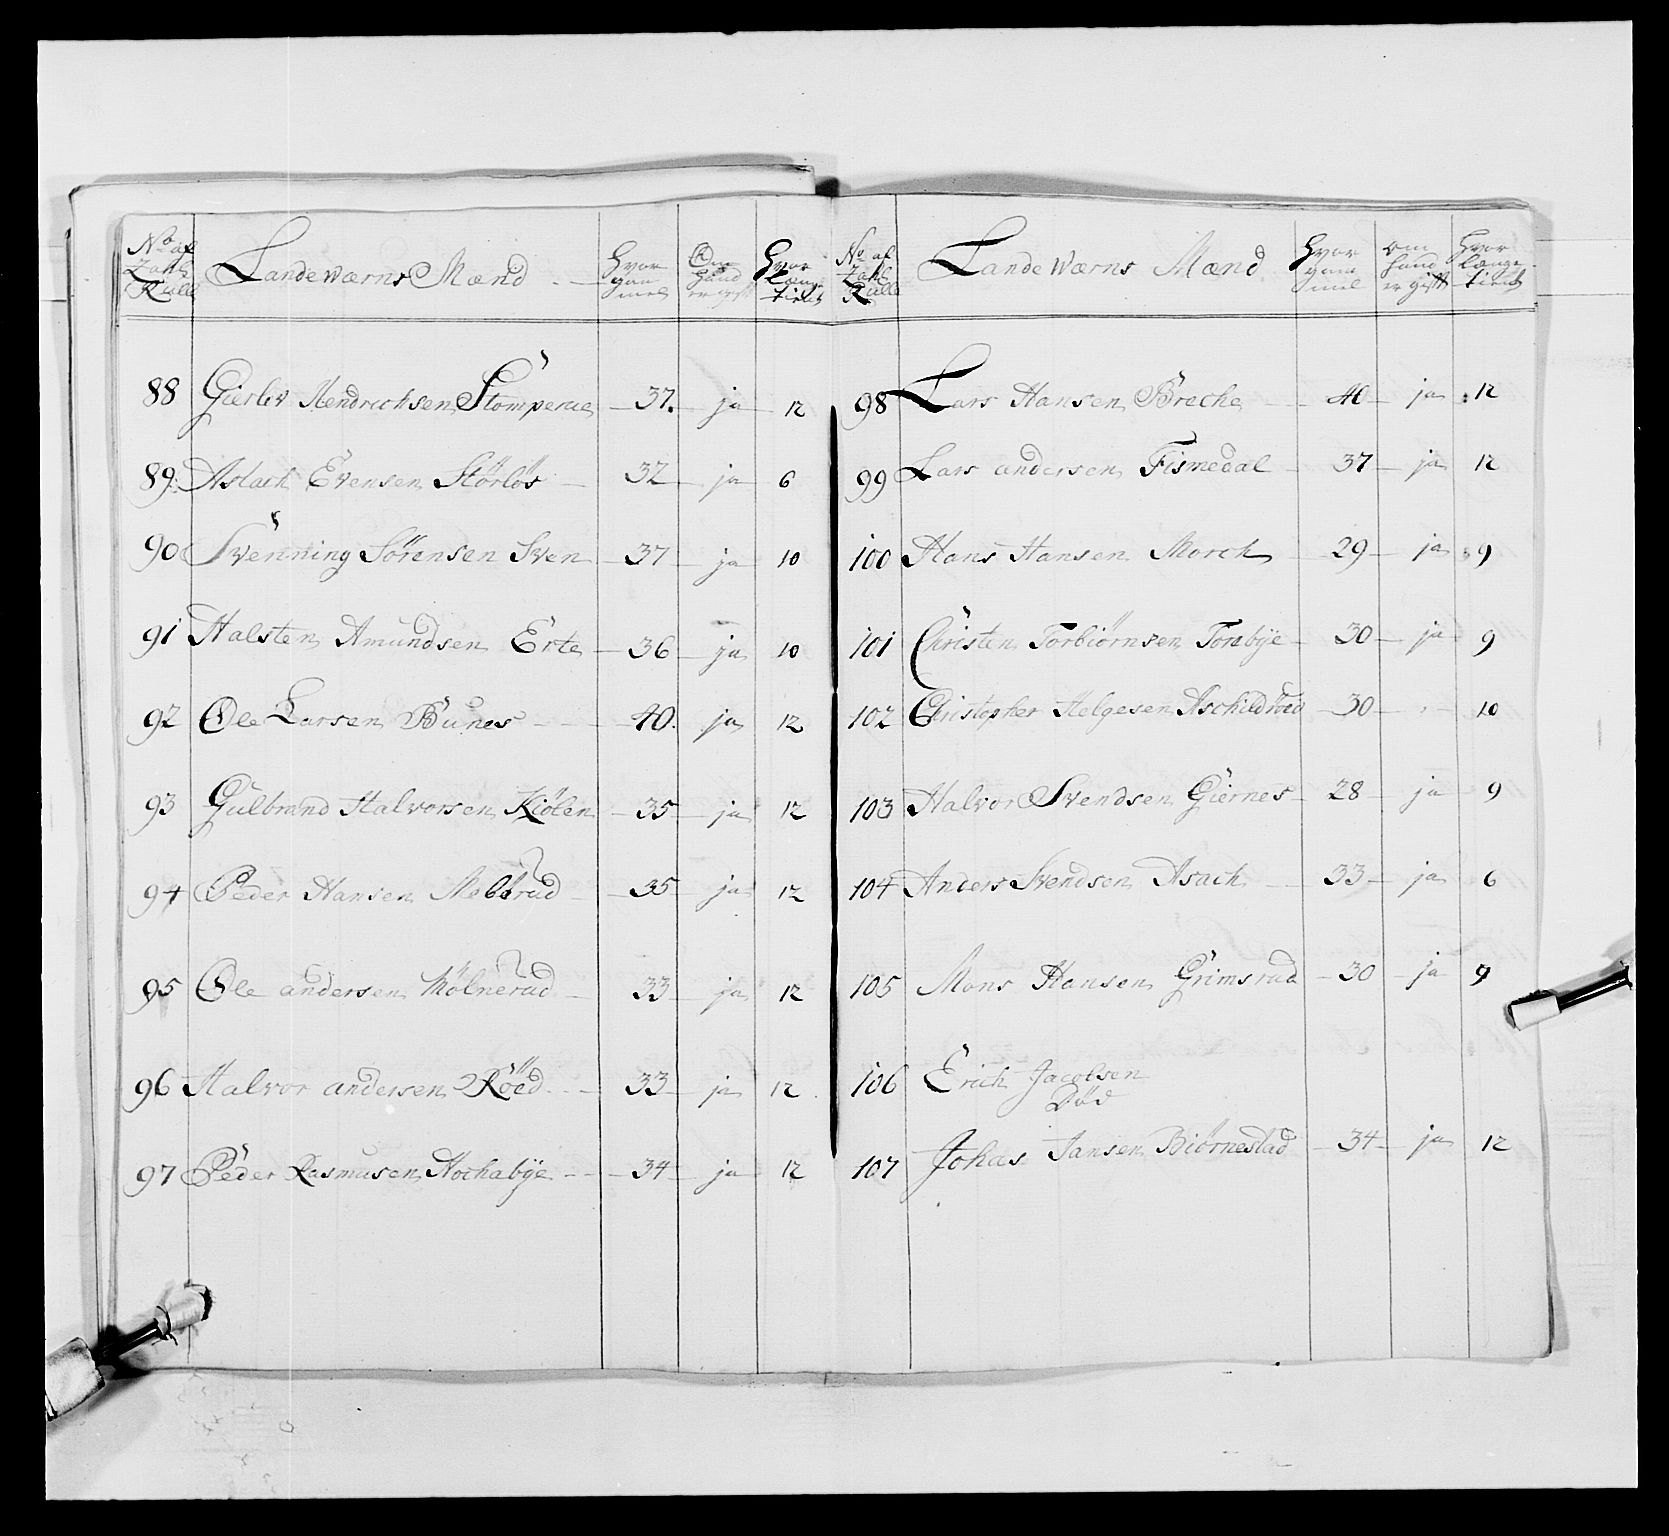 No af Zahl Rulle | Lande Wærns Mænd | Hvor gam mel | Om hand er gift | Hvor Længe tient
88 Gierlev Hendrichsen Stomperue 37. ja 12
89 Aslach Evensen Störlös 32 ja 6
90 Svenning Sörensen Sven 37 ja 10
91 Halsten Amundsen Erte 36 ja 10
92 Ole Larsen Bunes 40. ja 12
93 Gulbrand Halvorsen Kiölen 35 ja 12
94 Peder Hansen 35 ja 12
95 Ole andersen Mölnerud 33 ja 12
96 Halvor andersen Röed 33 ja 12
97 Peder Rasmusen Hochabÿe 34 ja 12
No af Zahl Rulle | Lande Wærns Mænd | Hvor gam mel | om hand er gift | Hvor længe tient
98 Lars Hansen Breche 40 ja 12
99 Lars andersen Fismedal 37 ja 12
100 Hans Hansen Morch 29 ja 9
101 Christen Torbiörnsen Torpbÿe 30 ja 9
102 Christopher Helgesen Aschildröed 30 10
103 Halvor Svendsen Giernes 28 ja 9
104 Anders Svendsen Asach 33 ja 6
105 Mons Hansen Grimsrud 30 ja 9
106 Erich Jacobsen
Död
107 Johas Jansen Biörnestad 34 ja 12